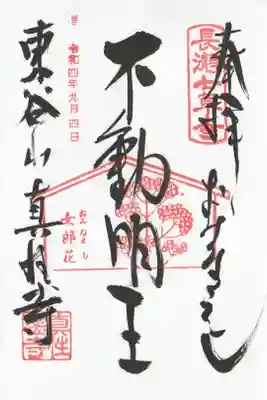 長瀞七草寺
奉拝 おみなえし
不動明王
おみなえし
女郎花
令和四年九月四日
東谷山真性寺